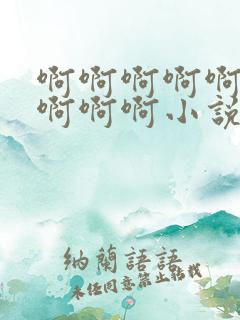 啊啊啊啊啊
啊啊啊小说
纳蘭語語
未经同意禁止转载